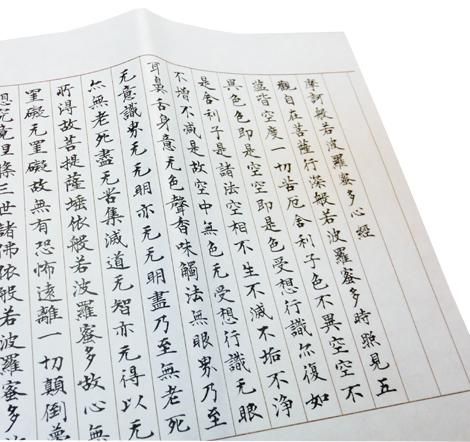 摩訶般若波羅蜜多心經
觀自在菩薩行深般若波羅蜜多時照見五
蘊皆空度一切苦厄舍利子色不異空空不
異色色即是空空即是色受想行識尔復如
是舍利子是諸法空相不生不滅不垢不淨
不增不減是故空中無色无受想行識无眼
耳鼻舌身意无色聲香味觸法無眼界乃至
无意識界无无明亦无无明盡乃至無老死
無老死盡无苦集滅道无智亦无得以无
所得故菩提薩埵依般若波羅蜜多故心無
罣礙无罣礙故無有恐怖遠離一切顛倒夢
想究竟涅槃三世諸佛依般若波羅蜜多